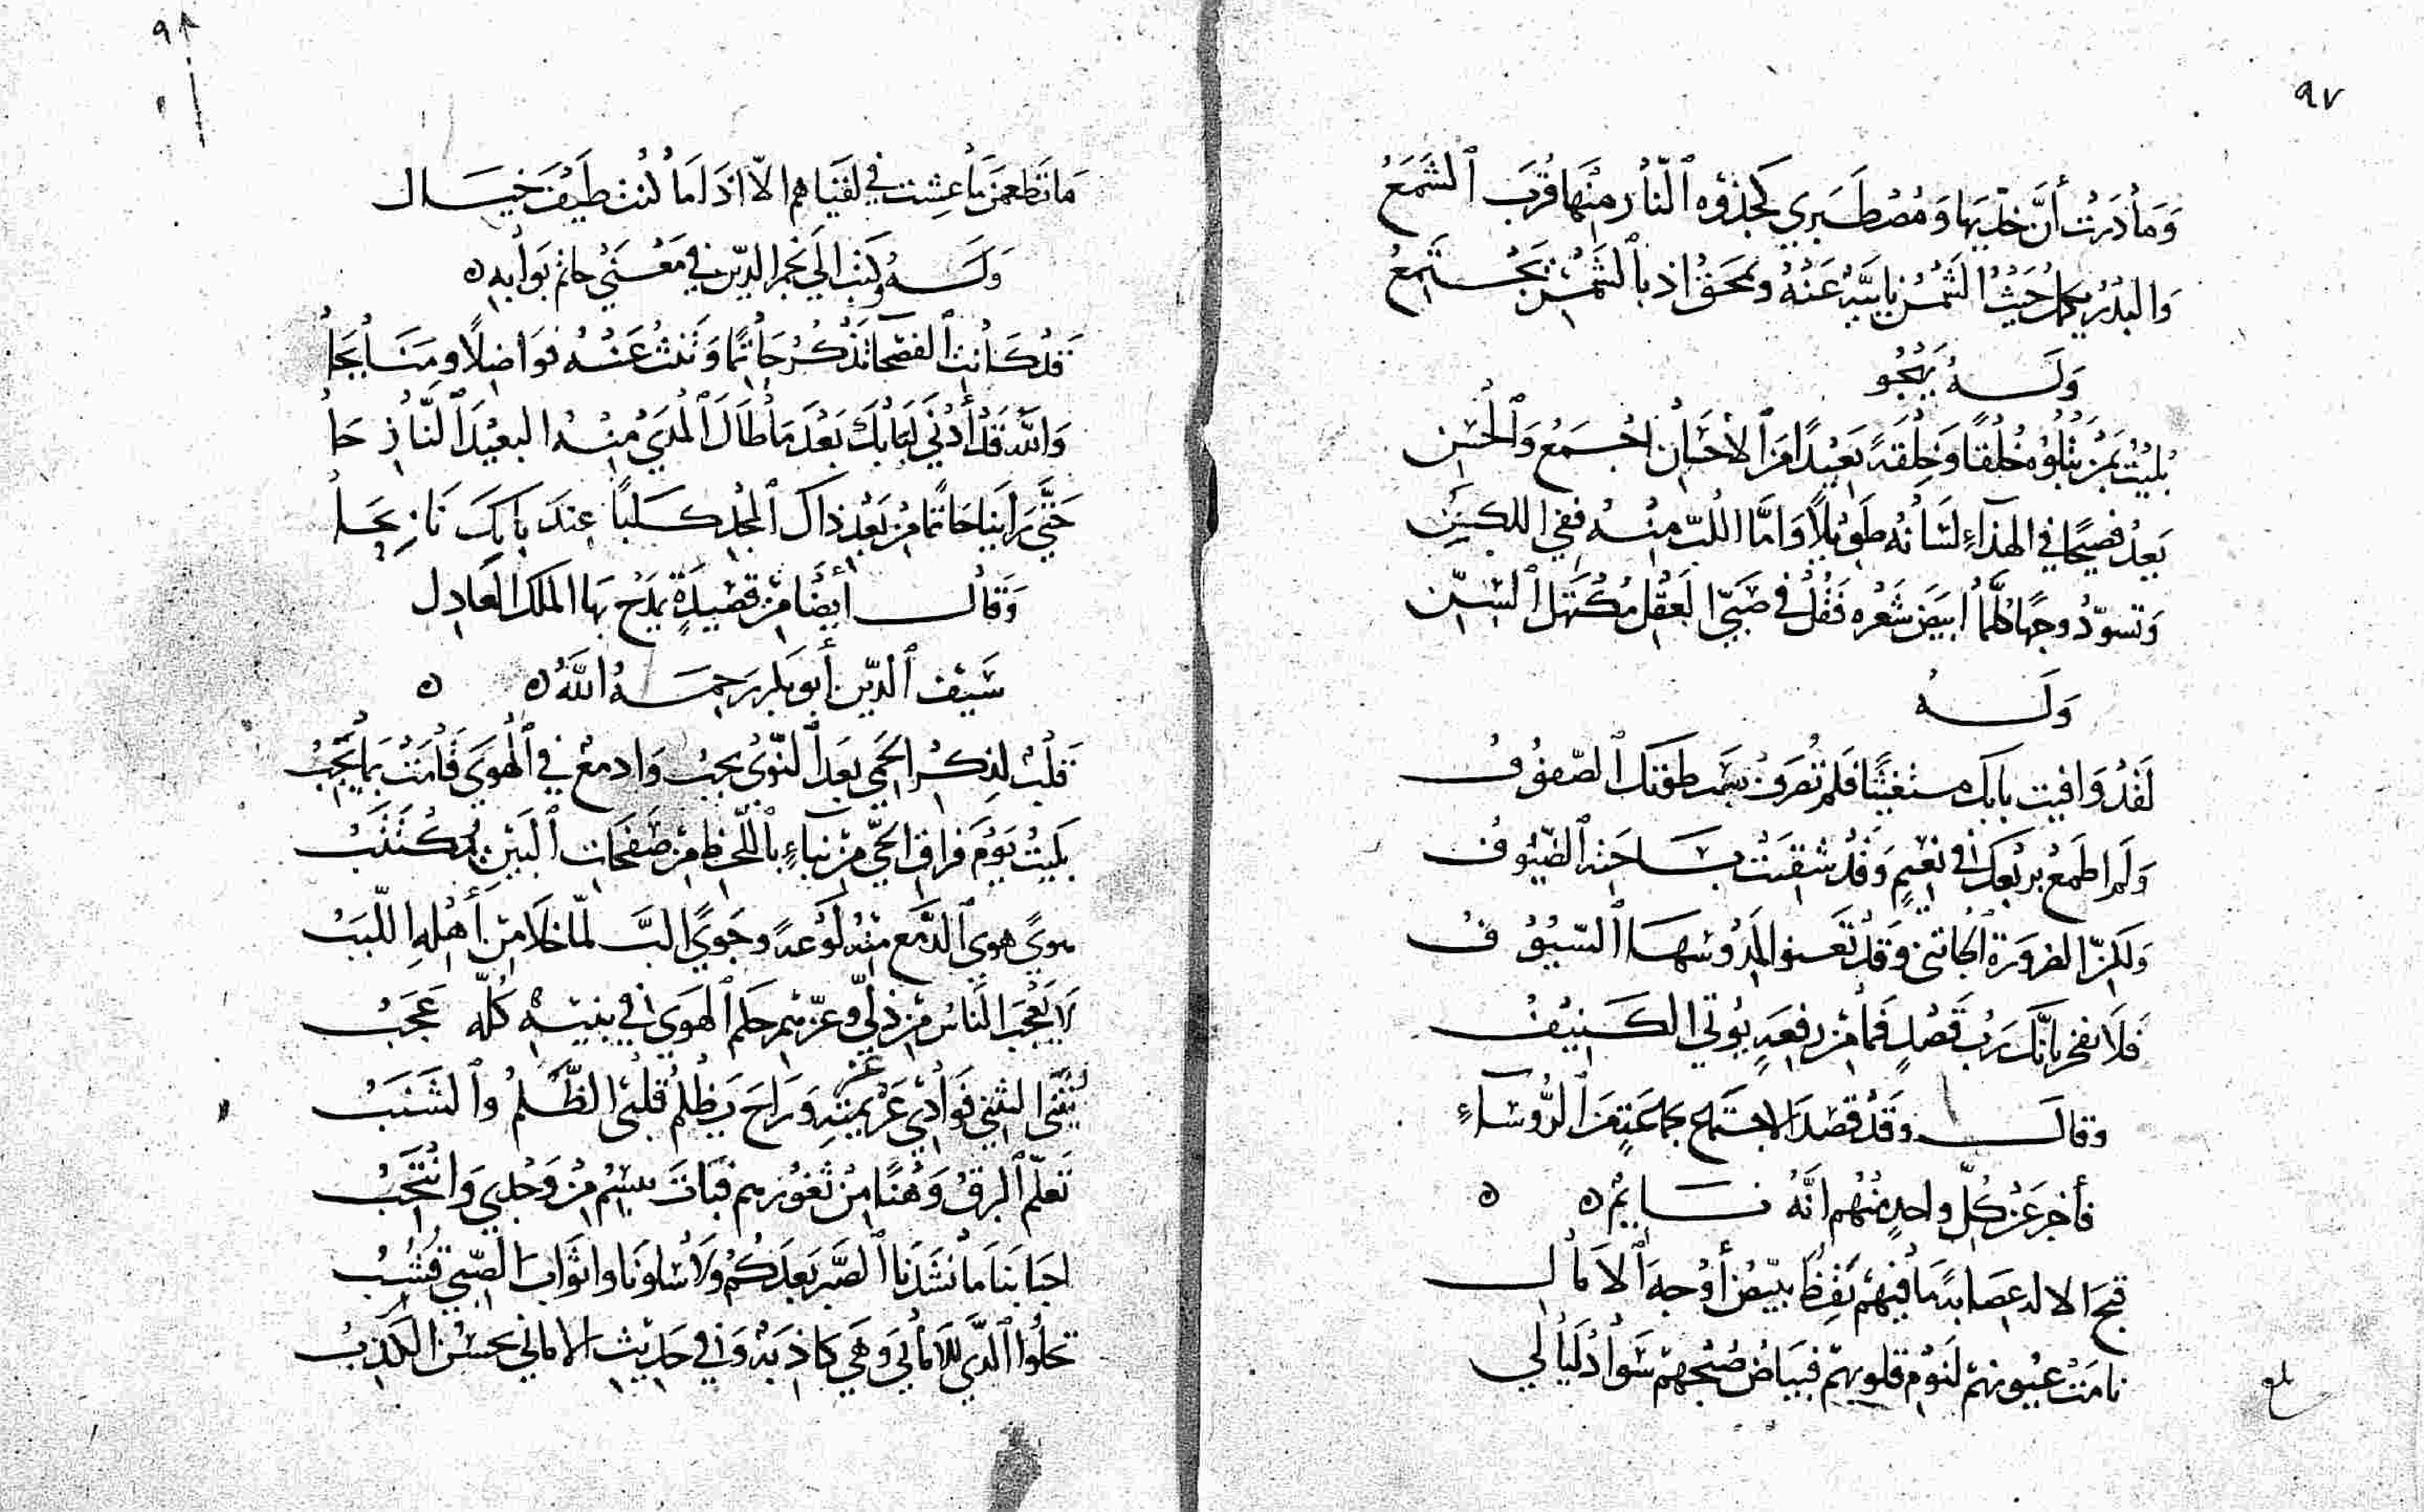 ٩٧
وَمَا دَرَتْ أنَّ خدّيها وَمُصْطَبَري كجذوه ٱلنَّار منْها قُرّبَ ٱلشَّمَعُ
وَالبَدْرُ يكمل حَيْثُ الشَّمْسُ نايَيةٌ عَنْهُ ويمحَق اذ بٱلشَّمْسِ يَجْتَمِعُ
وَلَــهُ يَهْجُو
بُليْتُ بمَنْ يَتْلُوهُ خُلْقًا وَخِلْقَةً بَعيْدًا مَن ٱلأحْسَان اجْمَعُ وَٱلحُسْنِ
يَعدُ فصيحًا في الهذاءِ لسَانهُ طَوِيْلًا وَامَّا اللُبّ منْهُ ففي اللكنِ
وَتسوّدُ وجهًا كلّمَا ابيَض شَعْره فَقُلْ في صَبيّ العَقْل مُكْتَهل ٱلسّنّ
وَلَــهُ
لَقدْ وَافيت بابك مستغيثًا فلم تُعرَفْ بسَمت طَوقتك ٱلصّفوُفُ
وَلَم اطمَعْ بربْعكَ في نَعيْمٍ وَقَدْ شقيَتْ بسَاحَته ٱلضّيُوفُ
وَلَكنّ الضرورَة ٱلجَاتني وَقَدْ تعنوا لمَدْوسهَا ٱلسّيُوْفُ
فَلَا تفخر بانّكَ رَبُّ قَصْرٍ فمَا مِنْ رفعَةٍ يُوتي الكَنِيْفُ
وقالَــ وَقَدْ قصَدَ الاجتماع بجماعَةٍ مَن ٱلرُّوسَاءِ
فأخبرَ عَنْ كُلّ واحدٍ منْهُم انَّهُ نَــايمٌ ه ه
قبحَ الالهُ عصَابةً مَا فيْهمْ يَقِظٌ يبيّضُ أوْجهَ ٱلآمَالِ
نامَتْ عيُونهمْ لنَوْم قلوبهمْ فبيَاضُ صُبْحهمْ سَوادُ لَيَالي
بلع
٩٨
مَا تَطعمَن مَا عِشت في لقيَاهم الّا اذَا مَا كُنت طَيْفَ خيَــال
وَلَــهُ وكتبَ الَى نجم الدّين في مَعْنَى حاتم بَوّابه ه
قدْ كَانَت ٱلفصَحا تذْكُرُ حَاتمًا وَتَبثُ عَنْهُ فوَاضِلًا ومَنَايحَا
وَاللّه قَدْ أدْنَي لبَابكَ بَعْدَ مَا طَالَ ٱلمدَىْ منْهُ البعيْدَ ٱلنَّازِحَا
حَتَّي رَاينَا حَاتمًا مِنْ بَعْد ذاكَ ٱلمجْد كــلبًا عِندَ بابِكَ نَابِحَا
وَقَالَــ أيضًا مِنْ قصِيْدَةٍ يمدَحُ بهَا الملك العَادِل
سَيْف ٱلدّين أبو بكر رَحمَــهُ اللّهُ ه ه
قلْبٌ لذِكْر الحَمي بعْدَ ٱلنّوَى يجبُ وَادمعٌ في ٱلهْوَي قَامَتْ بمَا يَجِبُ
بَليْتُ يَوْمَ فراق الحَيّ مِنْ نبَاءٍ بٱللّحْظ مِنْ صَفَحَات ٱلبَيْن يُكْتَتَبُ
هَوىً هوي ٱلدَّمْع منْهُ لَوْعةً وجَويً البَّ لمّا خَلَا مِنْ أهْلهِ اللّبَبُ
لَا يَعْجَب النَّاس مِن ذلّي وعزّهِم حكم ٱلهوَي في بَنيْهِ كُلّه عَجَبُ
ثنَي التثني فوَادِي عَنْ يميْنهِ وَرَاحَ يَظْلمُ قلْبىَ الظّلْمُ وٱلشَنَبُ
تَعلّم ٱلبرْقُ وَهْنًا مِنْ ثغُورهم فبَاتَ يبْسِمُ مِنْ وَجْدِي وَانْتَحِبُ
احبَابنَا مَا نشَدْنَا ٱلصَّبرَ بَعدَكُمُ وَلَا سُلونَا واثوَاب ٱلصّبي قُشُبُ
تحلُوا ٱلّذي للَامَانِي وَهْيَ كاذبَةٌ وَفي حَدِيْث الاماني يحسُنُ الكَذِبُ